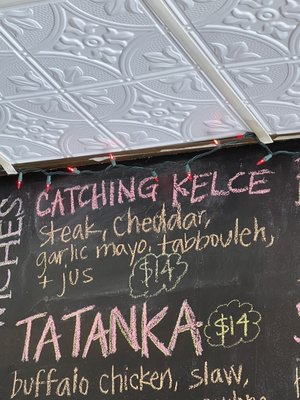 CATCHING KELCE
steak, cheddar,
garlic mayo, tabbouleh,
+ jus $14
TATANKA $14
buffalo chicken, slaw,